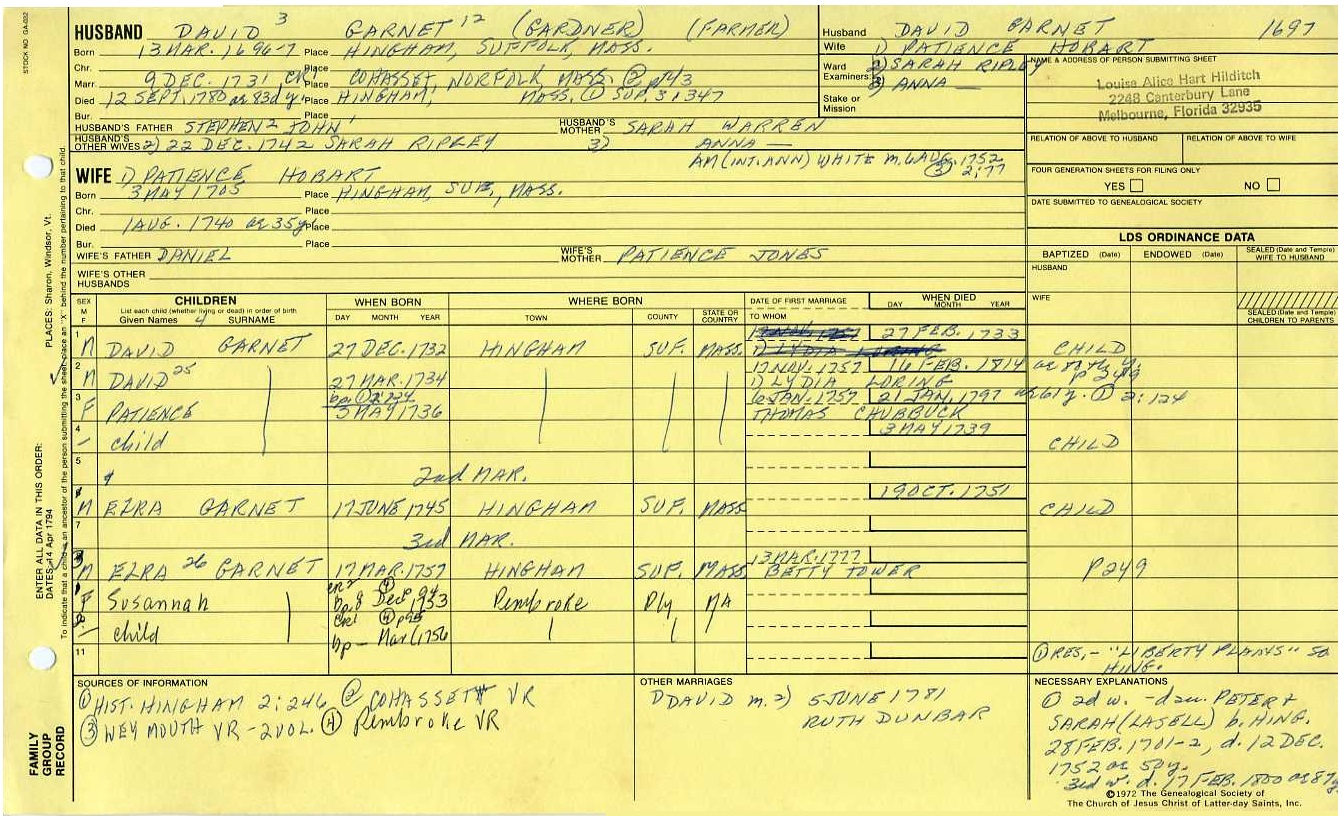 STOCK NO. GA-022
HUSBAND DAVID 3 GARNET 12 (GARDNER) (FARMER)
Born 13 MAR. 1696-7 Place HINGHAM, SUFFOLK, MASS.
Chr. Place
Marr. 9 DEC. 1731 CR1 Place COHASSET, NORFOLK, MASS. ② p143
Died 12 SEPT. 1780 ae 83d y. Place HINGHAM, MASS. ① SUP. 3:347
Bur. Place
HUSBAND'S FATHER STEPHEN 2 JOHN 1 HUSBAND'S MOTHER SARAH WARREN
HUSBAND'S OTHER WIVES 2) 22 DEC. 1742 SARAH RIPLEY 3) ANNA —
AM (INT. ANN) WHITE m. 6 AUG. 1752
③ 2:77
Husband DAVID GARNET 1697
Wife 1) PATIENCE HOBART
2) SARAH RIPLEY
3) ANNA —
Ward
Examiners:
Stake or Mission
NAME & ADDRESS OF PERSON SUBMITTING SHEET
Louise Alice Hart Hilditch
2248 Canterbury Lane
Melbourne, Florida 32935
RELATION OF ABOVE TO HUSBAND RELATION OF ABOVE TO WIFE
FOUR GENERATION SHEETS FOR FILING ONLY
YES NO
DATE SUBMITTED TO GENEALOGICAL SOCIETY
WIFE 1) PATIENCE HOBART
Born 3 MAY 1705 Place HINGHAM, SUF., MASS.
Chr. Place
Died 1 AUG. 1740 ae 35 y. Place
Bur. Place
WIFE'S FATHER DANIEL WIFE'S MOTHER PATIENCE JONES
WIFE'S OTHER HUSBANDS
LDS ORDINANCE DATA
BAPTIZED (Date) ENDOWED (Date) SEALED (Date and Temple) WIFE TO HUSBAND
HUSBAND
WIFE
SEALED (Date and Temple) CHILDREN TO PARENTS
SEX M F CHILDREN WHEN BORN WHERE BORN DATE OF FIRST MARRIAGE WHEN DIED
List each child (whether living or dead) in order of birth
Given Names 4 SURNAME DAY MONTH YEAR TOWN COUNTY STATE OR COUNTRY TO WHOM DAY MONTH YEAR
1 M DAVID GARNET 27 DEC. 1732 HINGHAM SUF. MASS. 1) LYDIA LORING 27 FEB. 1733 CHILD
2 M DAVID 25 27 MAR. 1734 17 NOV. 1757 1) LYDIA LORING 16 FEB. 1814 p 249
3 F PATIENCE 3 MAY 1736 6 JAN. 1757 THOMAS CHUBBUCK 21 JAN. 1797 ae 61 y. ① 2:124
4 — child 3 MAY 1739 CHILD
5 2nd MAR.
M EZRA GARNET 17 JUNE 1745 HINGHAM SUF. MASS 19 OCT. 1751 CHILD
7 3rd MAR.
M EZRA 26 GARNET 17 MAR. 1757 HINGHAM SUF. MASS 13 MAR. 1777 BETTY TOWER p249
F Susannah bp. 8 Dec 1753 Pembroke Ply MA
— child CR1 ④ p95 bp — Mar 1756
11
① RES. - "LIBERTY PLAINS" SO HING.
SOURCES OF INFORMATION
① HIST. HINGHAM 2:246 ② COHASSET VR
③ WEYMOUTH VR - 2 VOL. ④ Pembroke VR
OTHER MARRIAGES
1) DAVID m. 2) 5 JUNE 1781
RUTH DUNBAR
NECESSARY EXPLANATIONS
① 2d w. - dau. PETER &
SARAH (LASELL) b. HING.
28 FEB. 1701-2, d. 12 DEC.
1752 ae 50 y.
3rd w. d. 17 FEB. 1800 ae 87 y.
©1972 The Genealogical Society of
The Church of Jesus Christ of Latter-day Saints, Inc.
ENTER ALL DATA IN THIS ORDER:
DATES: 14 Apr 1794
PLACES: Sharon, Windsor, Vt.
To indicate that a child is an ancestor of the person submitting the sheet, place an "X" behind the number pertaining to that child.
FAMILY
GROUP
RECORD